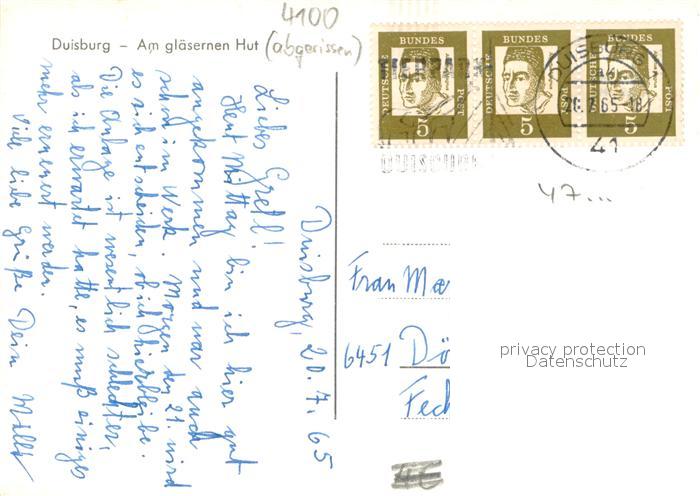 4100
Duisburg – Am gläsernen Hut (abgerissen)
Duisburg, 20.7.65
Liebes Gretl!
Heut Mittag bin ich hier gut
angekommen und war auch
schon im Werk. Morgen den 21. wird
es sich entscheiden, ob ich hierbleibe.
Die Anlage ist wesentlich schlechter,
als ich erwartet hatte, es muß einiges
mehr erneuert werden.
Viele liebe Grüße Dein Willi
DEUTSCHE BUNDES POST 5
DEUTSCHE BUNDES POST 5
DEUTSCHE BUNDES POST 5
DUISBURG
20.7.65-18
41
DUISBURG
47...
Frau Mae
6451 Dö
Fech
privacy protection
Datenschutz
4€